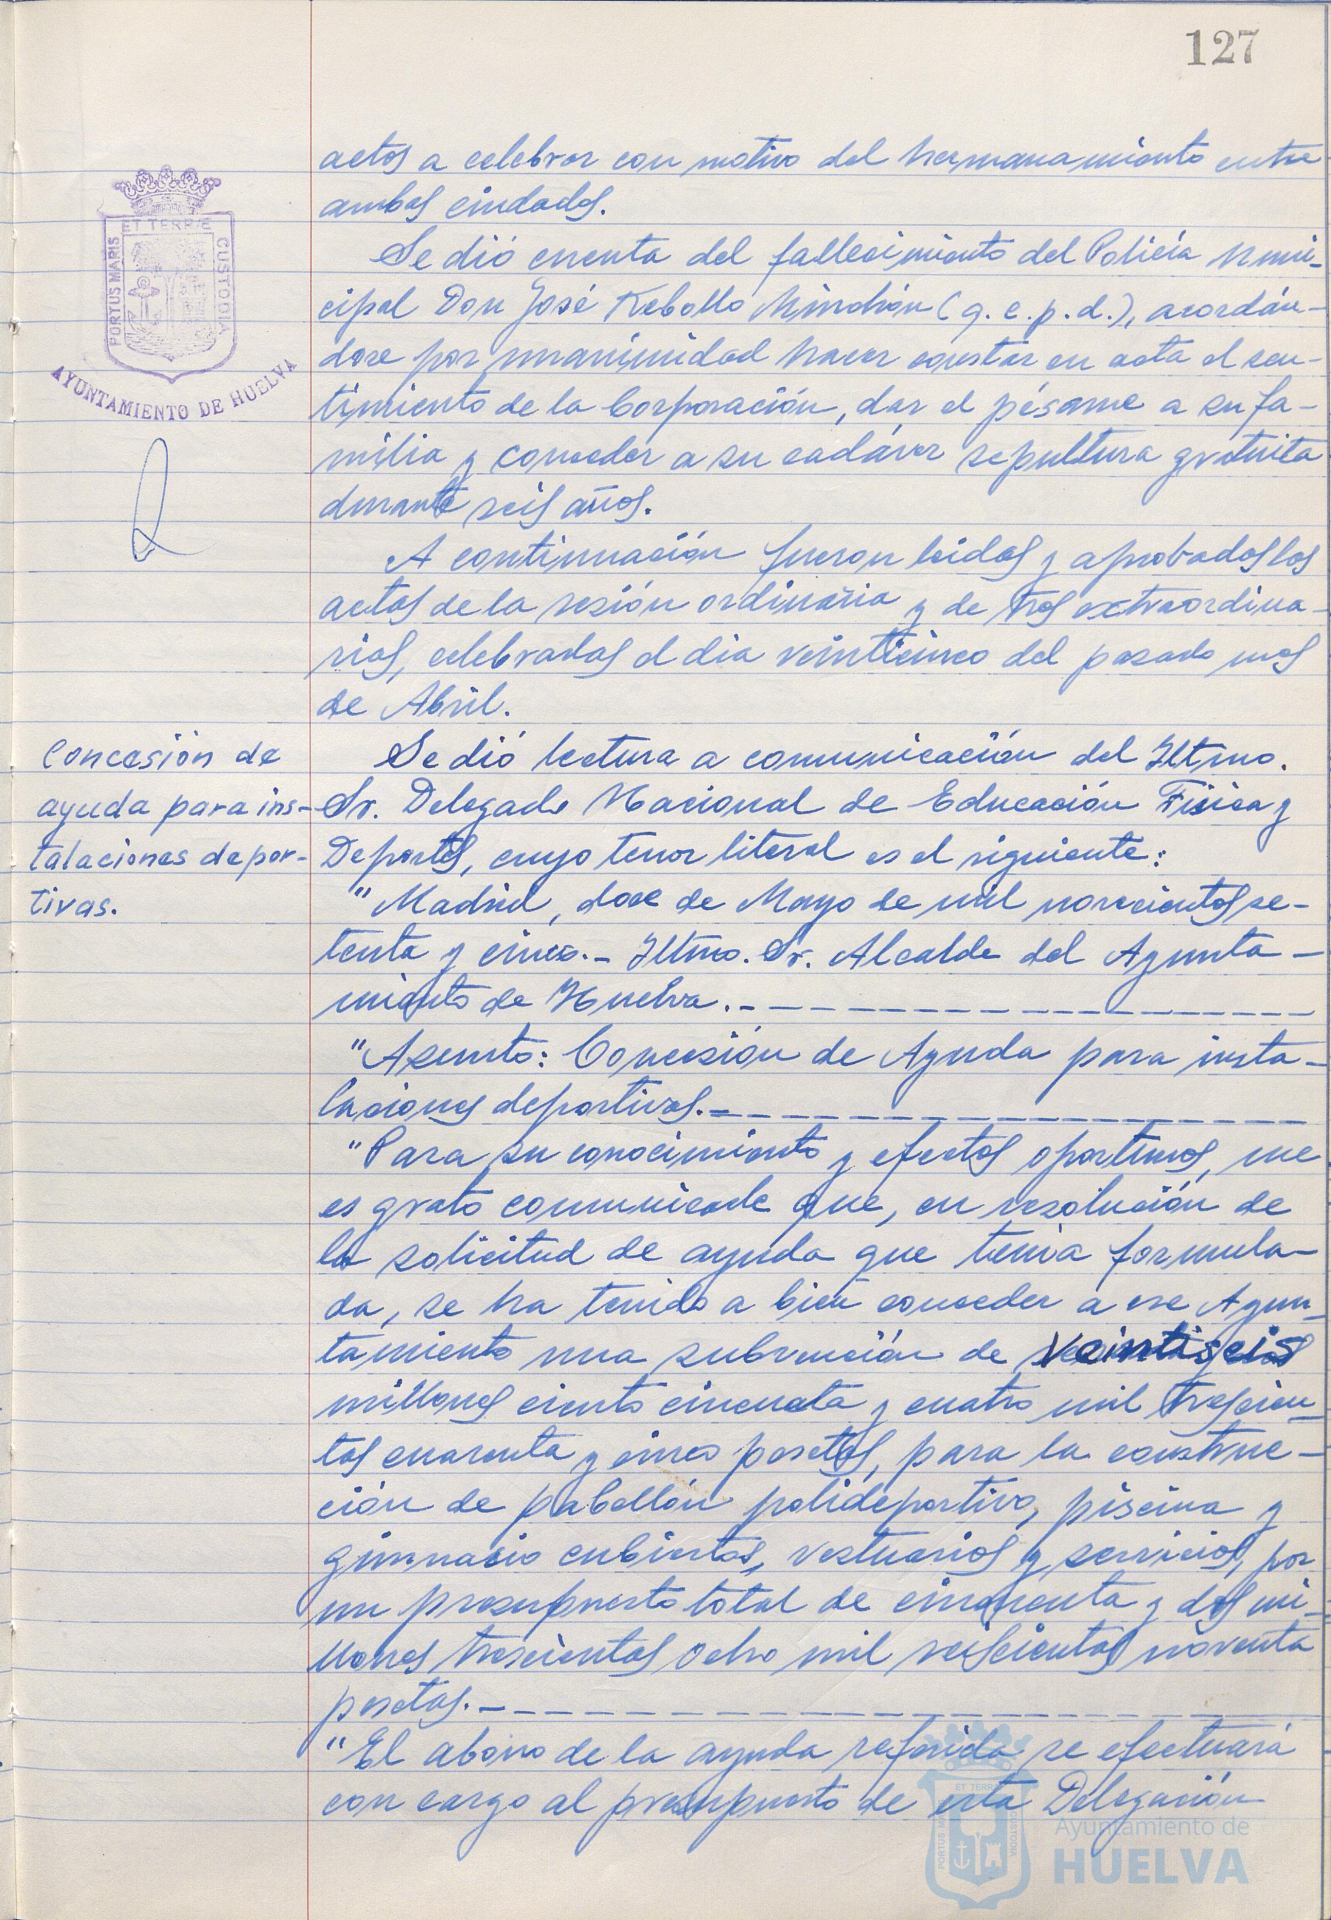 127
actos a celebrar con motivo del hermanamiento entre
ambas ciudades.
ET TERRÆ
PORTUS MARIS
CUSTODIA
AYUNTAMIENTO DE HUELVA
Se dió cuenta del fallecimiento del Policía Muni-
cipal Don José Rebollo (q. e. p. d.), acordán-
dose por unanimidad hacer constar en acta el sen-
timiento de la Corporación, dar el pésame a su fa-
milia y conceder a su cadáver sepultura gratuita
durante seis años.
A continuación fueron leidas y aprobadas las
actas de la sesión ordinaria y de tres extraordina-
rias, celebradas el dia veinticinco del pasado mes
de Abril.
Concesión de
ayuda para ins-
talaciones depor-
tivas.
Se dió lectura a comunicación del Iltmo.
Sr. Delegado Nacional de Educación Física y
Deportes, cuyo tenor literal es el siguiente:
"Madrid, doce de Mayo de mil novecientos se-
tenta y cinco.- Iltmo. Sr. Alcalde del Ayunta-
miento de Huelva.-
"Asunto: Concesión de Ayuda para insta-
laciones deportivas.-
"Para su conocimiento y efectos oportunos, me
es grato comunicarle que, en resolución de
la solicitud de ayuda que tenia formula-
da, se ha tenido a bien conceder a ese Ayun-
tamiento una subvención de veintiseis
millones ciento cincuenta y cuatro mil trescien-
tas cuarenta y cinco pesetas, para la construc-
ción de pabellón polideportivo, piscina y
gimnasio cubiertos, vestuarios y servicios, por
un presupuesto total de cincuenta y dos mi-
llones trescientas ocho mil seiscientas noventa
pesetas.-
"El abono de la ayuda referida se efectuará
con cargo al presupuesto de esta Delegación
ET TERRÆ
PORTUS MARIS
CUSTODIA
Ayuntamiento de
HUELVA